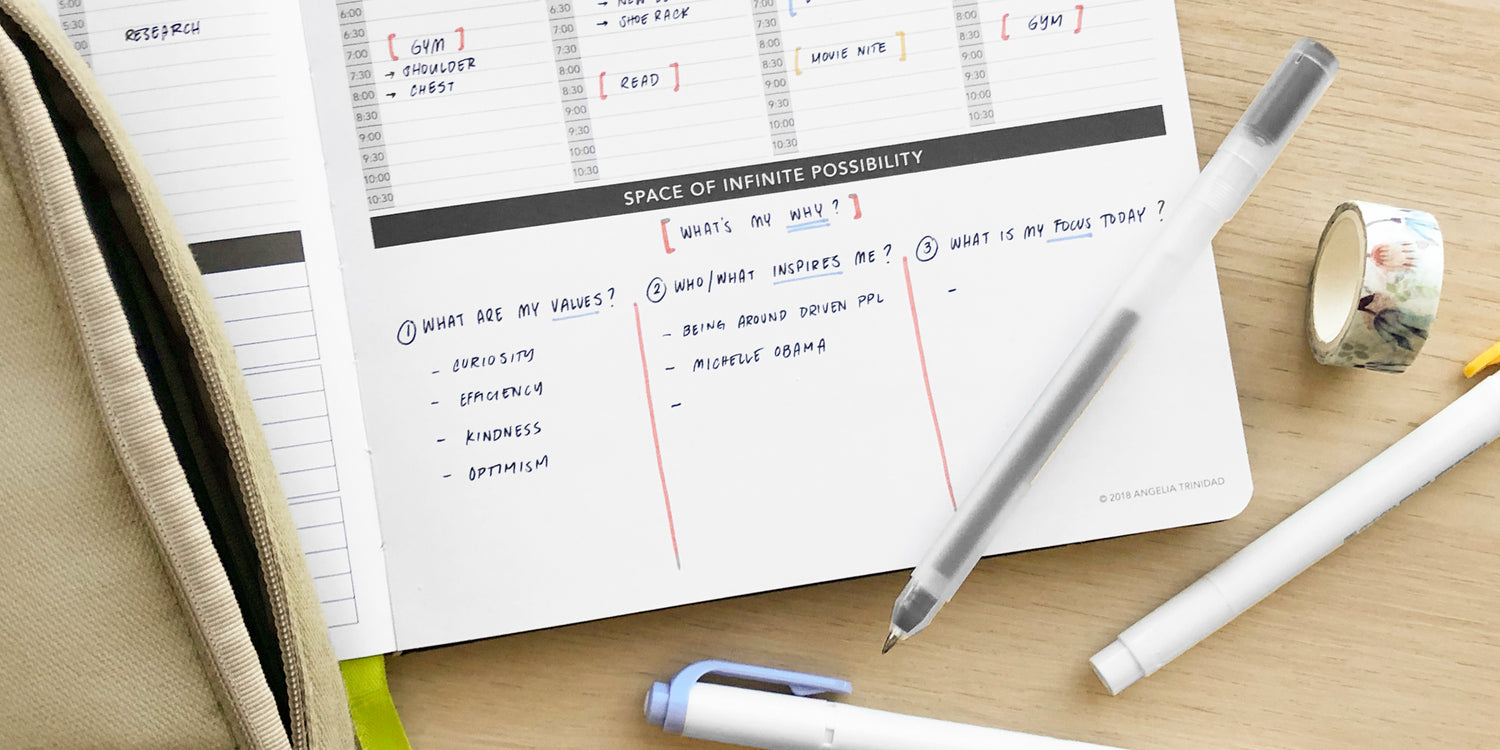 5:00
5:30
RESEARCH
6:00
6:30
7:00
7:30
8:00
8:30
9:00
9:30
10:00
10:30
[ GYM ]
→ SHOULDER
→ CHEST
6:30
7:00
7:30
8:00
8:30
9:00
9:30
10:00
10:30
→ SHOE RACK
[ READ ]
7:00
7:30
8:00
8:30
9:00
9:30
10:00
10:30
[ MOVIE NITE ]
8:00
8:30
9:00
9:30
10:00
10:30
[ GYM ]
SPACE OF INFINITE POSSIBILITY
[ WHAT'S MY WHY? ]
① WHAT ARE MY VALUES?
- CURIOSITY
- EFFICIENCY
- KINDNESS
- OPTIMISM
② WHO/WHAT INSPIRES ME?
- BEING AROUND DRIVEN PPL
- MICHELLE OBAMA
-
③ WHAT IS MY FOCUS TODAY?
-
© 2018 ANGELIA TRINIDAD